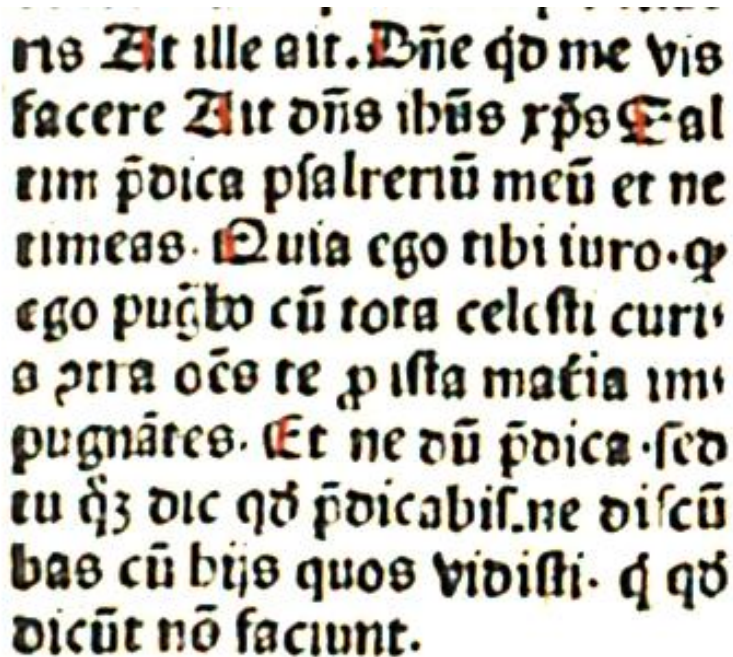 ris At ille ait. Dñe qd me vis
facere Ait dñs ihūs xp̄s Sal
tim p̄dica psalteriū meū et ne
timeas. Quia ego tibi iuro. ꝙ
ego pug̃bo cū tota celesti curi
a ꝯtra oc̄s te ꝓ ista mat̄ia im
pugnātes. Et ne dū p̄dica. sed
tu qꝫ dic qđ p̄dicabis. ne discū
bas cū hijs quos vidisti. q qđ
dicūt nō faciunt.